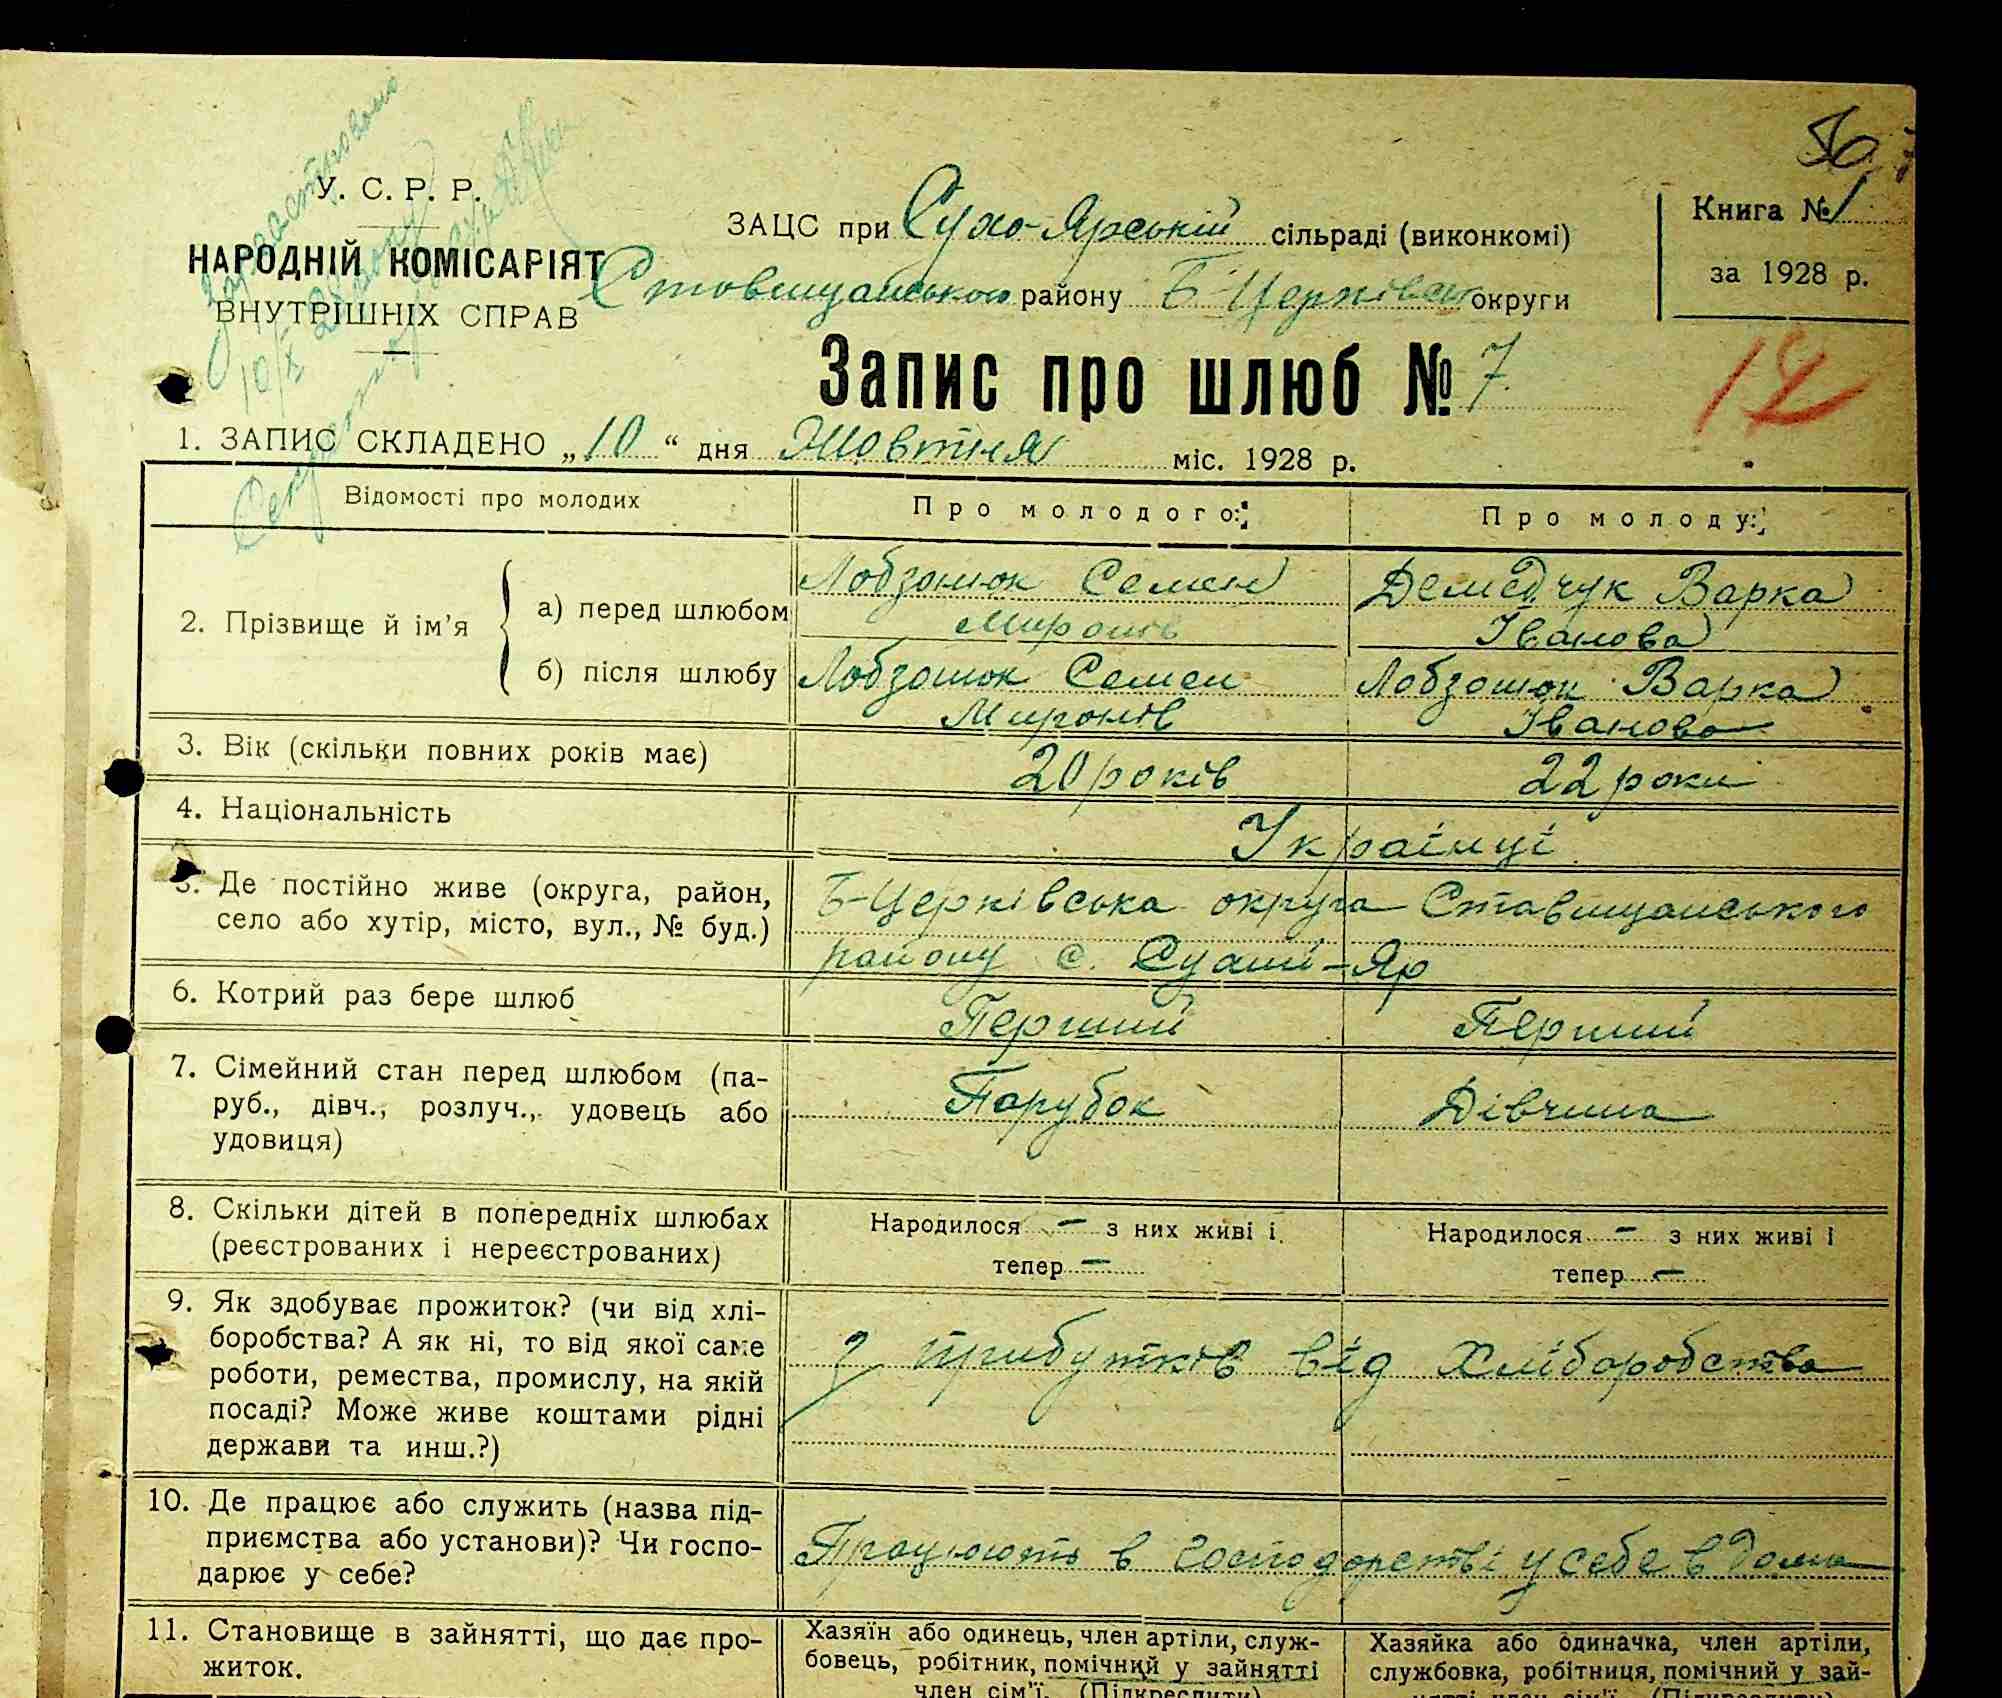 56
У. С. Р. Р.
НАРОДНІЙ КОМІСАРІЯТ
ВНУТРІШНІХ СПРАВ
10/X 28
ЗАЦС при Сухо-Ярській сільраді (виконкомі)
Ставищанського району Б Церківськ округи
Книга № 1
за 1928 р.
Запис про шлюб № 7.
12
1. ЗАПИС СКЛАДЕНО „10“ дня Жовтня міс. 1928 р.
Відомості про молодих
Про молодого:
Про молоду:
2. Прізвище й ім’я
а) перед шлюбом
Лобзонюк Семен
Миронів
Демедчук Варка
Іванова
б) після шлюбу
Лобзонюк Семен
Миронів
Лобзонюк Варка
Іванова
3. Вік (скільки повних років має)
20 років
22 роки
4. Національність
Українці
5. Де постійно живе (округа, район,
село або хутір, місто, вул., № буд.)
Б-Церківська округа Ставищанського
району с. Сухий-Яр
6. Котрий раз бере шлюб
Перший
Перший
7. Сімейний стан перед шлюбом (па-
руб., дівч., розлуч., удовець або
удовиця)
Парубок
Дівчина
8. Скільки дітей в попередніх шлюбах
(реєстрованих і нереєстрованих)
Народилося — з них живі і
тепер —
Народилося — з них живі і
тепер —
9. Як здобуває прожиток? (чи від хлі-
боробства? А як ні, то від якої саме
роботи, ремества, промислу, на якій
посаді? Може живе коштами рідні
держави та инш.?)
З прибутків від Хліборобства
10. Де працює або служить (назва під-
приємства або установи)? Чи госпо-
дарює у себе?
Працюють в господорстві у себе в дома
11. Становище в зайнятті, що дає про-
житок.
Хазяїн або одинець, член артілі, служ-
бовець, робітник, помічний у зайнятті
член сім’ї. (Підкреслити)
Хазяйка або одиначка, член артіли,
службовка, робітниця, помічний у зай-
нятті член сім’ї. (Підкреслити)